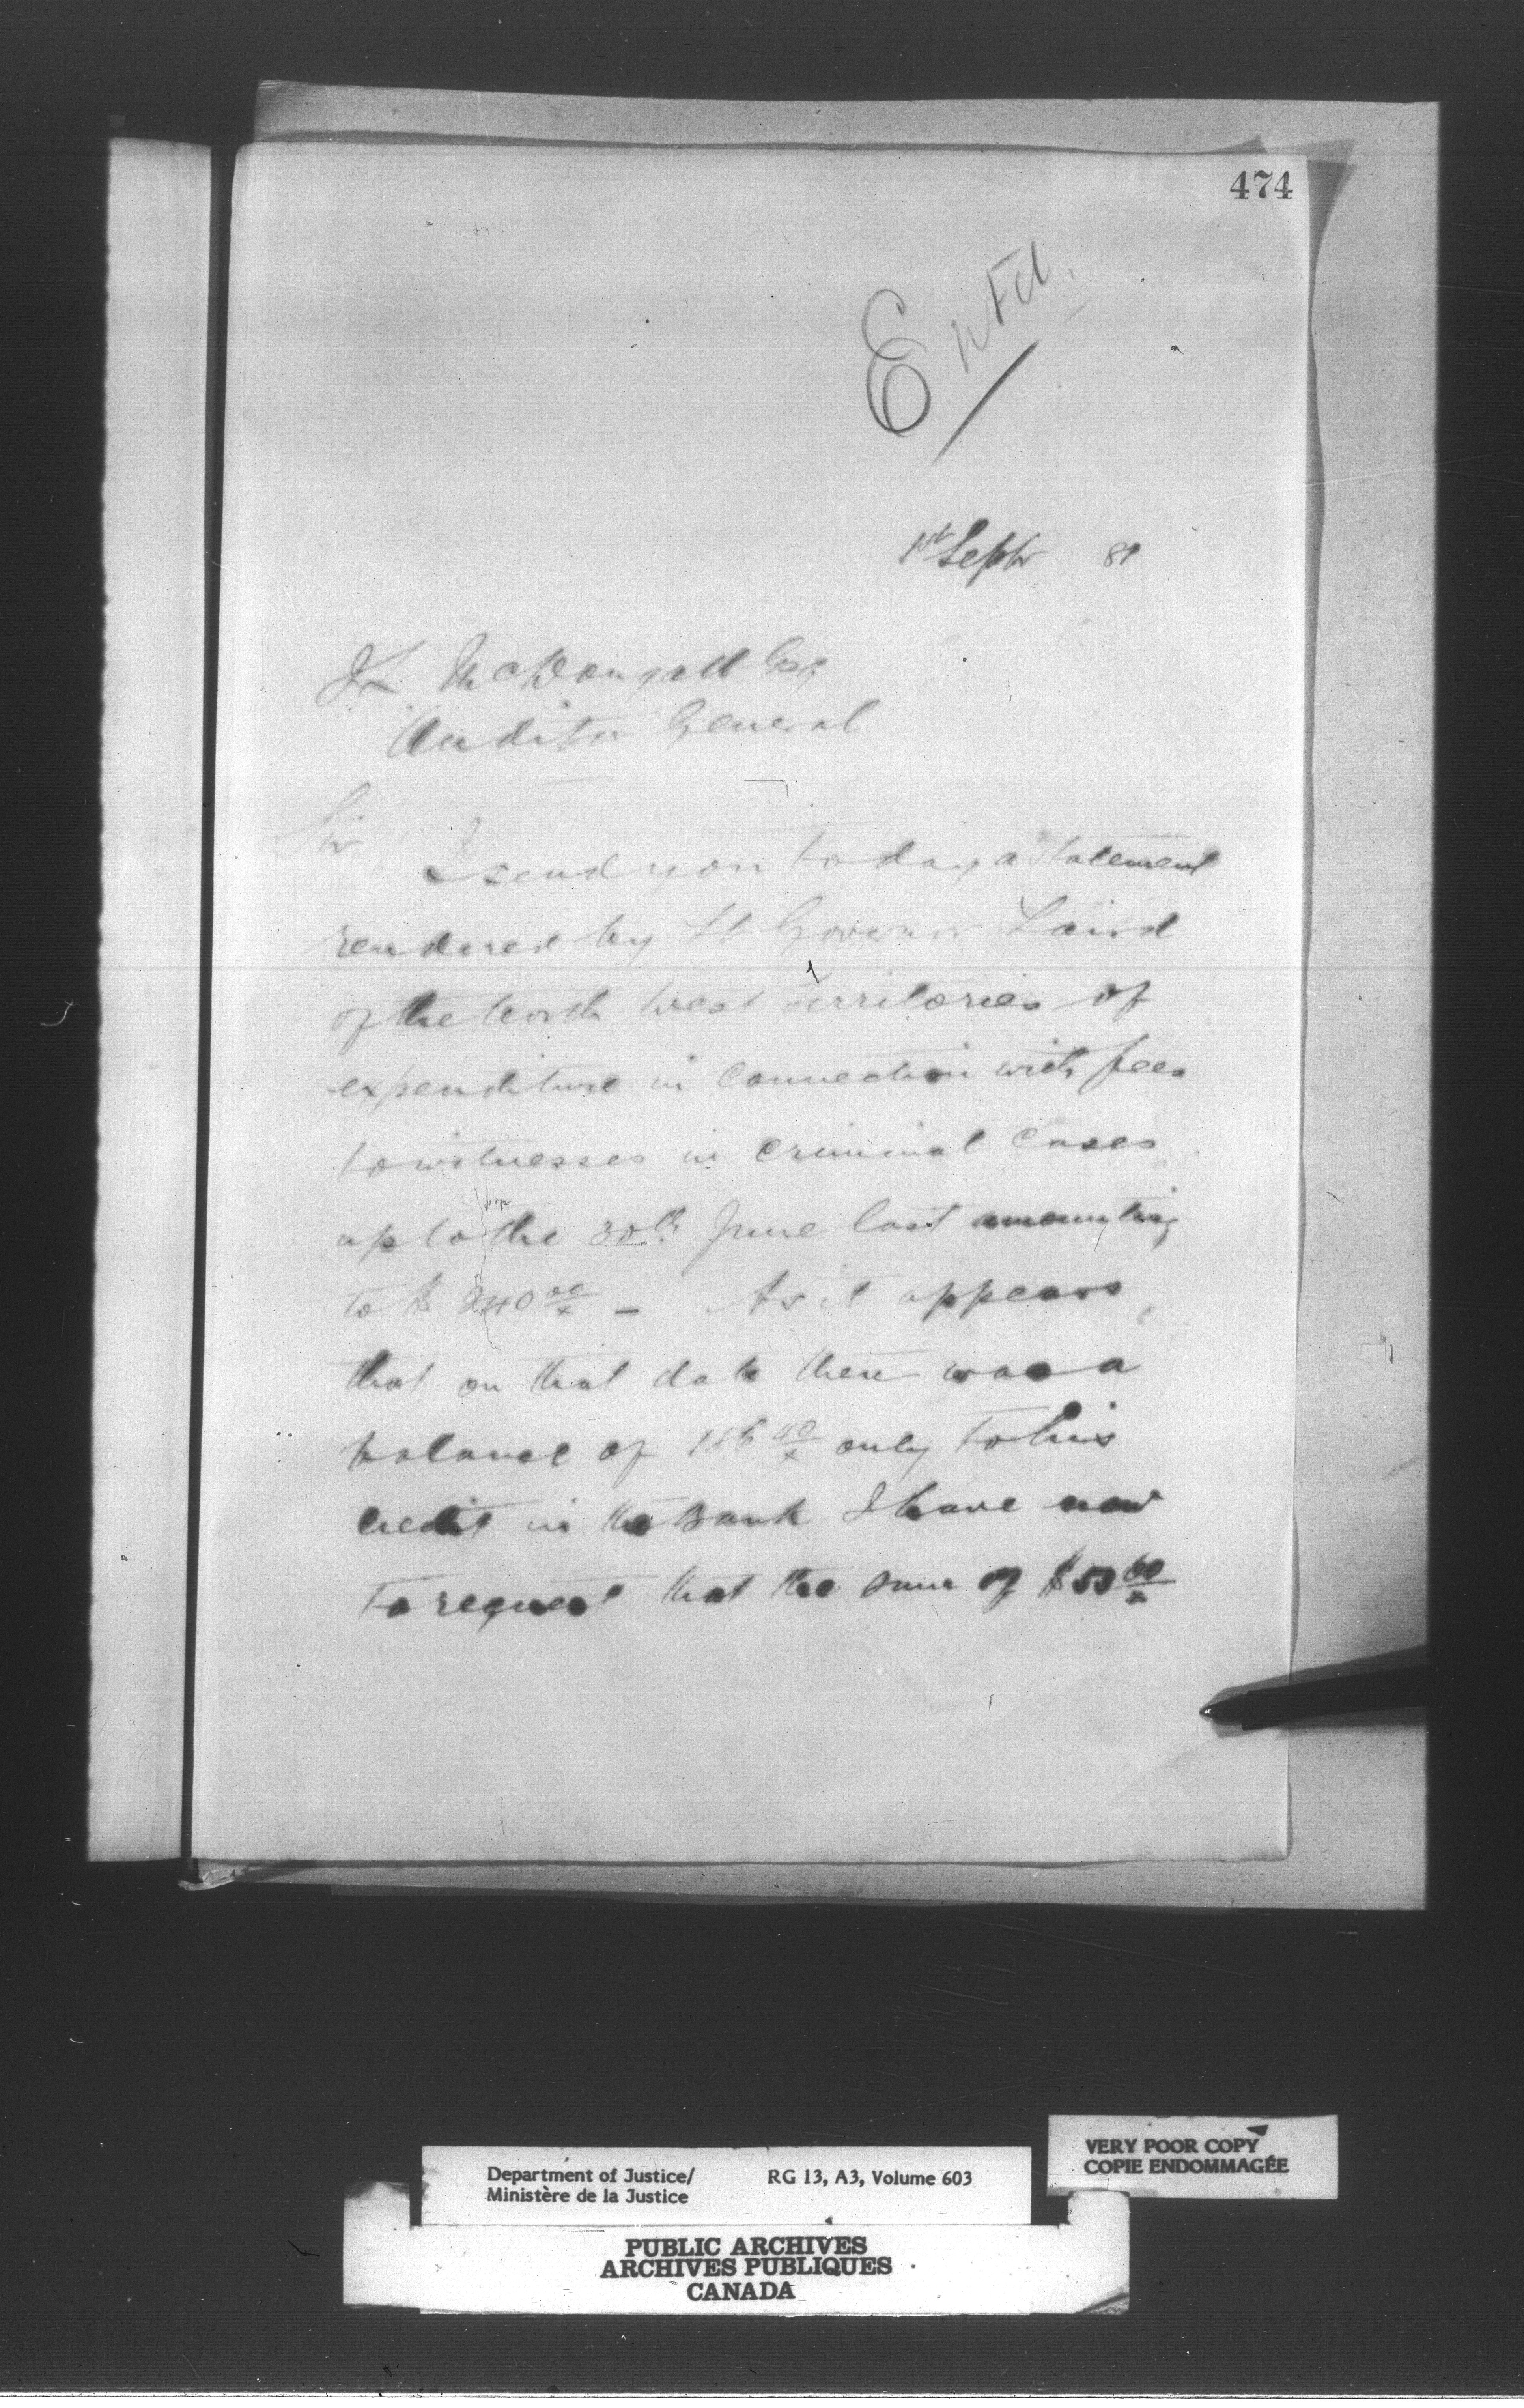 474
Entd.
1st Septr 81
J L McDougall Esq
Auditor General
Sir
I send you today a Statement
rendered by Lt Governor Laird
of the North West Territories of
expenditure in connection with fees
to witnesses in Criminal Cases
up to the 30th June last amounting
to $ 240 00/x – As it appears
that on that date there was a
balance of 186 40/x only to his
credit in the Bank I have now
to request that the sum of $53 60/x
Department of Justice/ RG 13, A3, Volume 603
Ministère de la Justice
VERY POOR COPY
COPIE ENDOMMAGÉE
PUBLIC ARCHIVES
ARCHIVES PUBLIQUES
CANADA